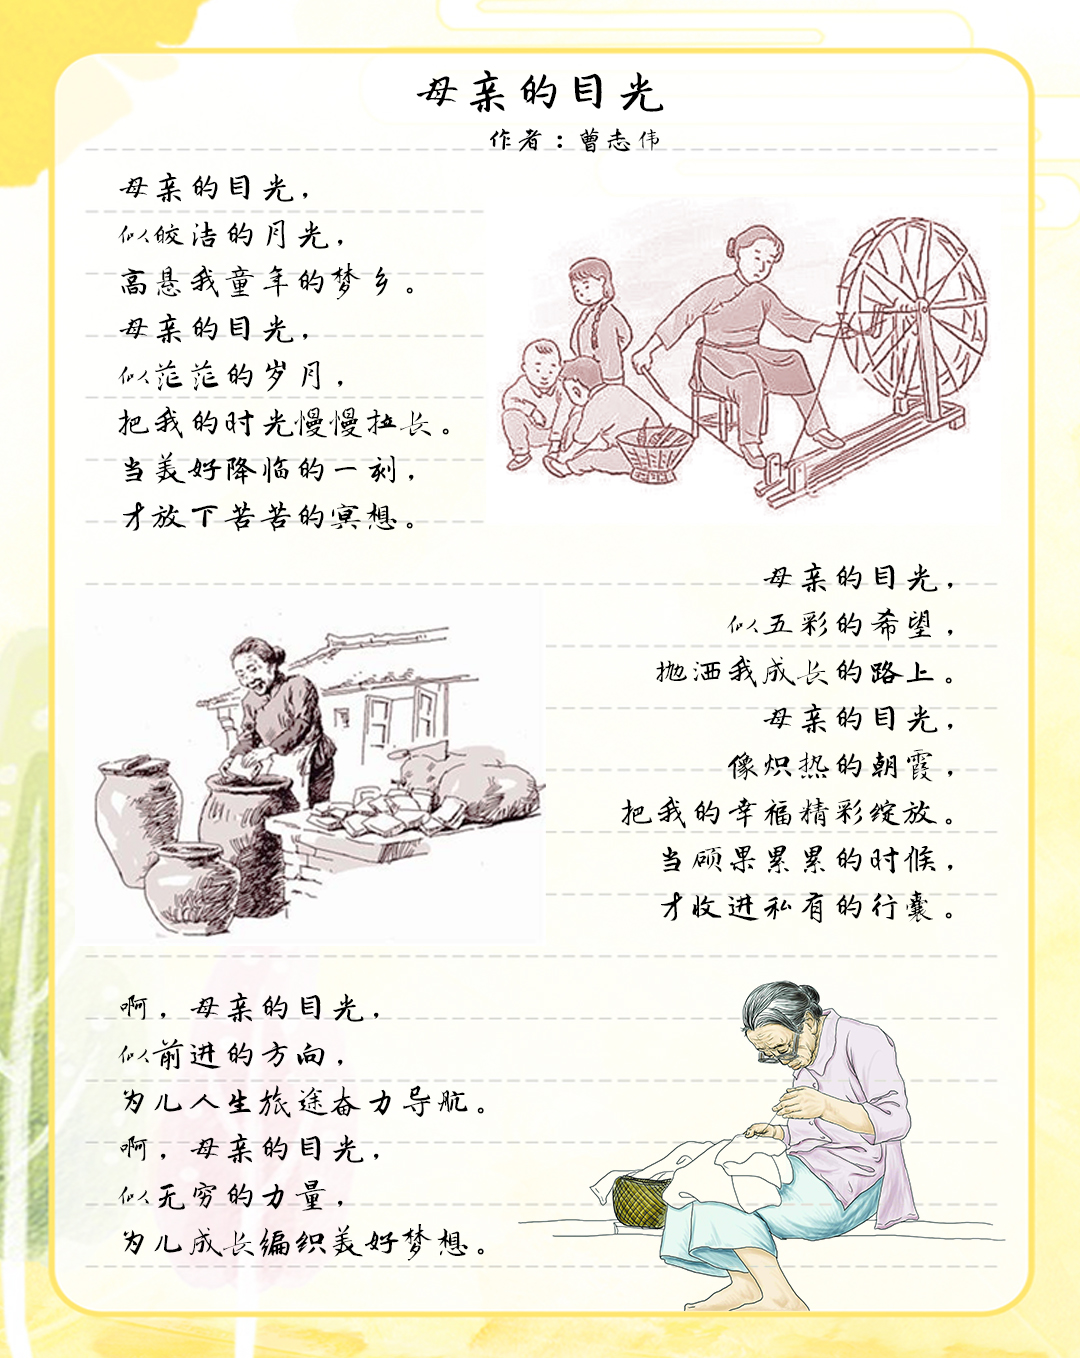 母亲的目光
作者：曹志伟
母亲的目光，
似皎洁的月光，
高悬我童年的梦乡。
母亲的目光，
似茫茫的岁月，
把我的时光慢慢拉长。
当美好降临的一刻，
才放下苦苦的冥想。
母亲的目光，
似五彩的希望，
抛洒我成长的路上。
母亲的目光，
像炽热的朝霞，
把我的幸福精彩绽放。
当硕果累累的时候，
才收进私有的行囊。
啊，母亲的目光，
似前进的方向，
为儿人生旅途奋力导航。
啊，母亲的目光，
似无穷的力量，
为儿成长编织美好梦想。